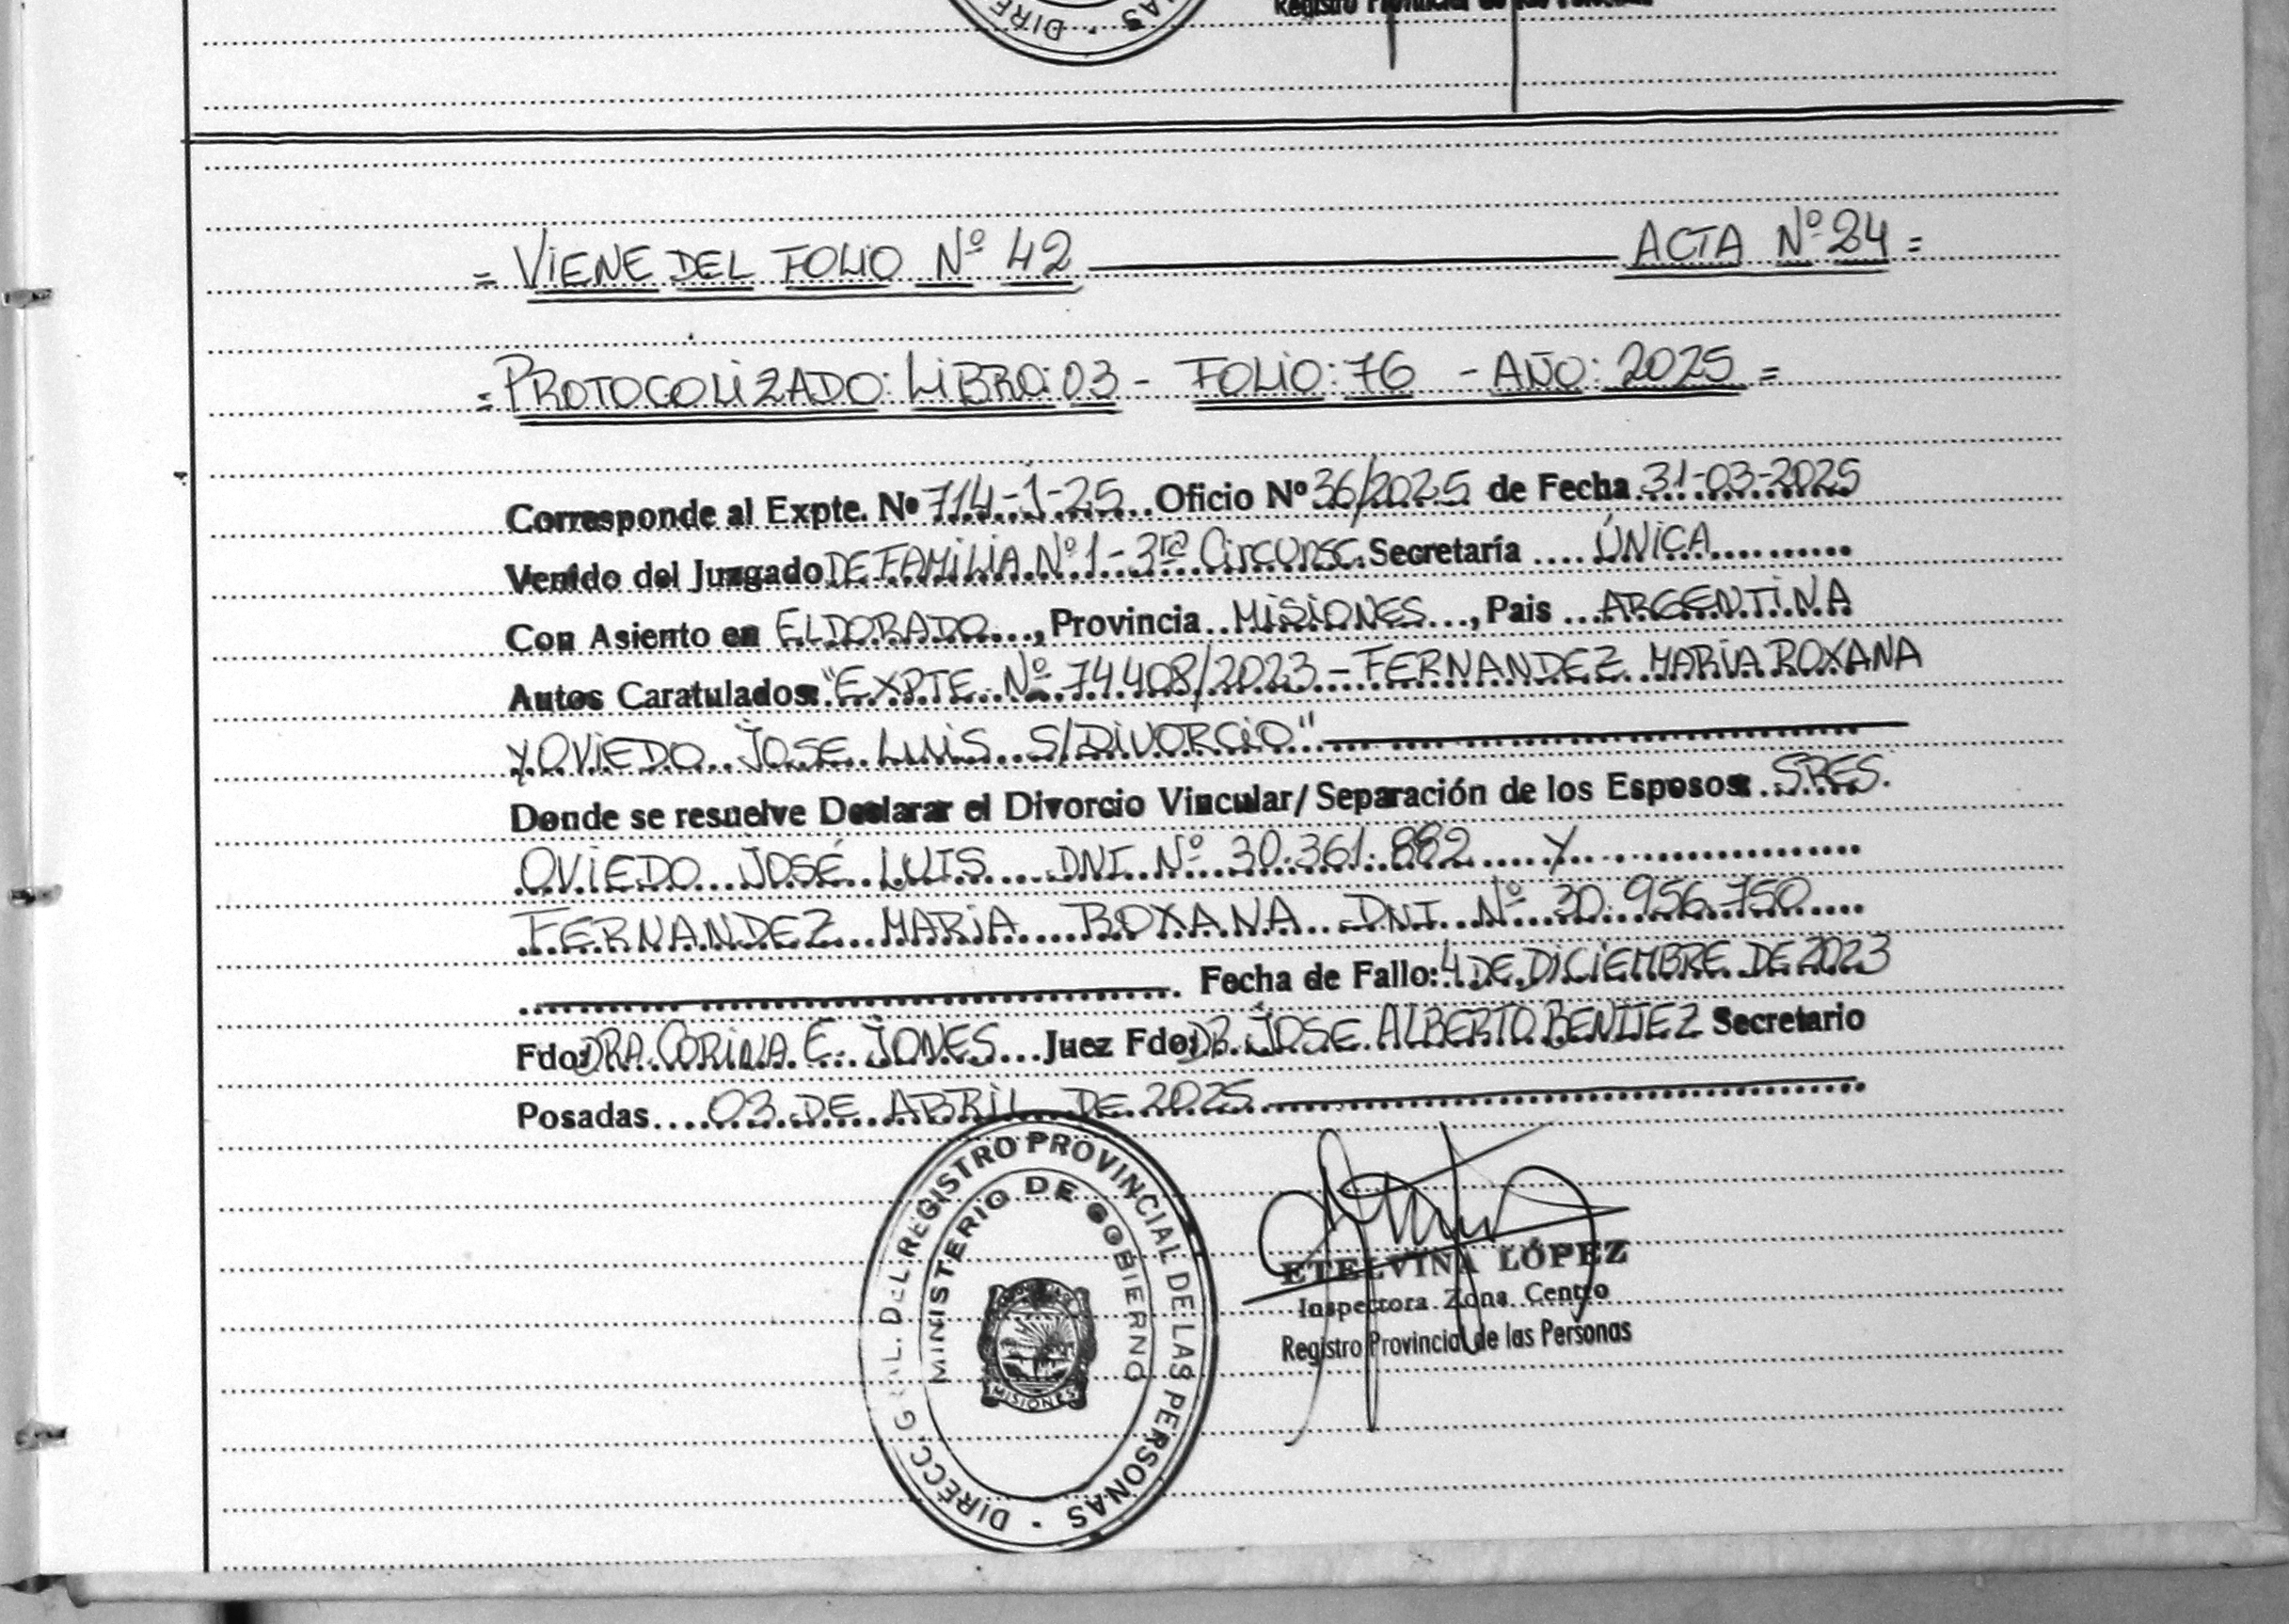 DIRE · AS
Registro Provincial de las Personas
= VIENE DEL FOLIO Nº 42 ACTA Nº 24 =
= PROTOCOLIZADO: LIBRO: 03 - FOLIO: 76 - AÑO: 2025 =
Corresponde al Expte. Nº 714-J-25 Oficio Nº 36/2025 de Fecha 31-03-2025
Venido del Juzgado DE FAMILIA Nº 1 - 3ra Circunsc. Secretaría ÚNICA
Con Asiento en ELDORADO, Provincia MISIONES, Pais ARGENTINA
Autos Caratulados: "EXPTE Nº 74408/2023 - FERNANDEZ MARIA ROXANA
Y OVIEDO JOSE LUIS S/DIVORCIO"
Donde se resuelve Declarar el Divorcio Vincular/Separación de los Esposos: SRES.
OVIEDO JOSÉ LUIS DNI Nº 30.361.882 Y
FERNANDEZ MARIA ROXANA DNI Nº 30.956.750
Fecha de Fallo: 4 DE DICIEMBRE DE 2023
Fdo: DRA. CORINA E. JONES Juez Fdo: DR. JOSE ALBERTO BENITEZ Secretario
Posadas 03 DE ABRIL DE 2025
DIRECC. GRAL. DEL REGISTRO PROVINCIAL DE LAS PERSONAS ·
MINISTERIO DE GOBIERNO
MISIONES
ETELVINA LÓPEZ
Inspectora Zona Centro
Registro Provincial de las Personas